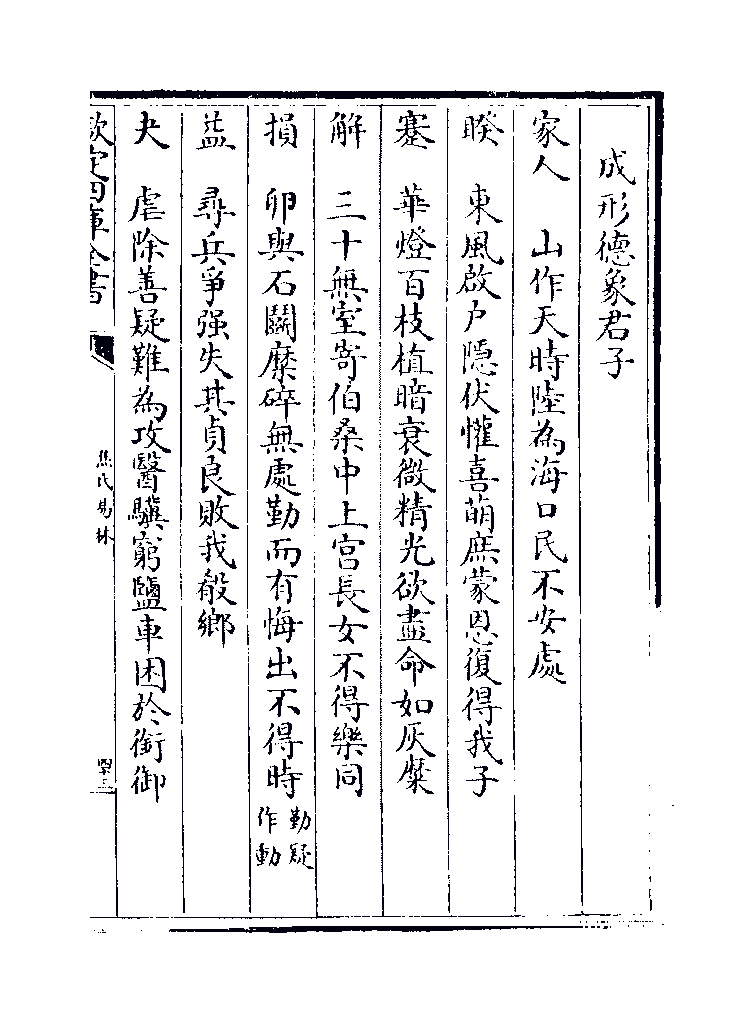 成形德象君子
家人　山作天時陸為海口民不安處
睽　東風啟户隱伏懽喜萌庶蒙恩復得我子
蹇　華燈百枝植暗衰微精光欲盡命如灰糜
解　三十無室寄伯桑中上宫長女不得樂同
損　卵與石鬭糜碎無處勤而有悔出不得時勤疑作動
益　尋兵爭强失其貞良敗我殽鄉
夬　虐除善疑難為攻醫驥窮鹽車困於銜御
欽定四庫全書
焦氏易林
四十三